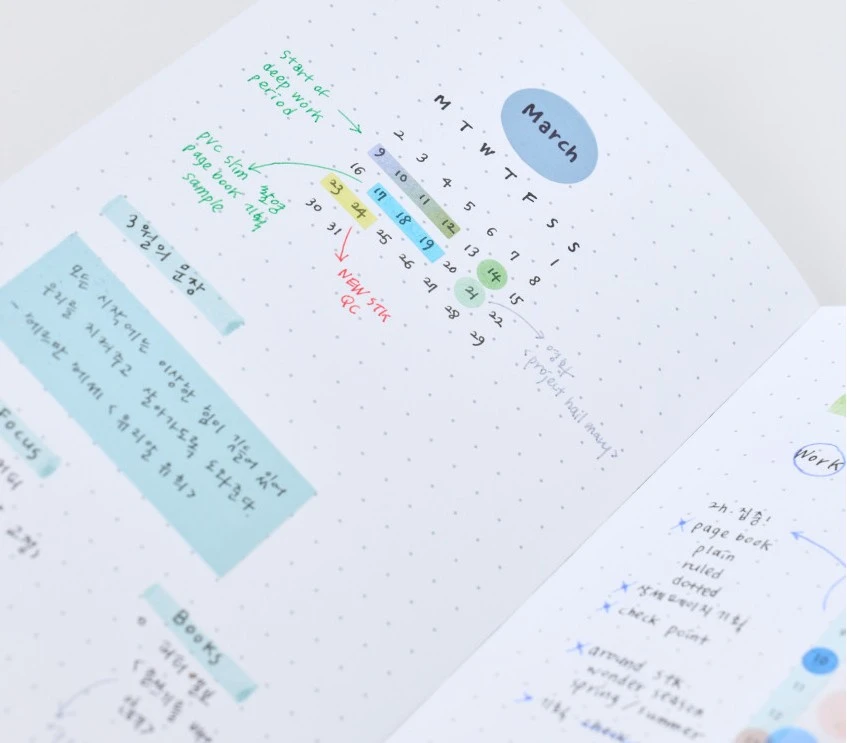 March
M T W T F S S
1
2 3 4 5 6 7 8
9 10 11 12 13 14 15
16 17 18 19 20 21 22
23 24 25 26 27 28 29
30 31
start of
deep work
period
PVC slim
page book 기획
sample
NEW STK
QC
영화
<project hail mary>
3월의 문장
모든 시작에는 이상한 힘이 깃들어 있어
우리를 지켜주고 살아가도록 도와준다
- 헤르만 헤세 <유리알 유희>
Focus
Books
Work
2h 집중!
page book
plain
ruled
dotted
상세페이지 기획
check point
around stk
wonder season
spring/summer
기획 check
10
11
12